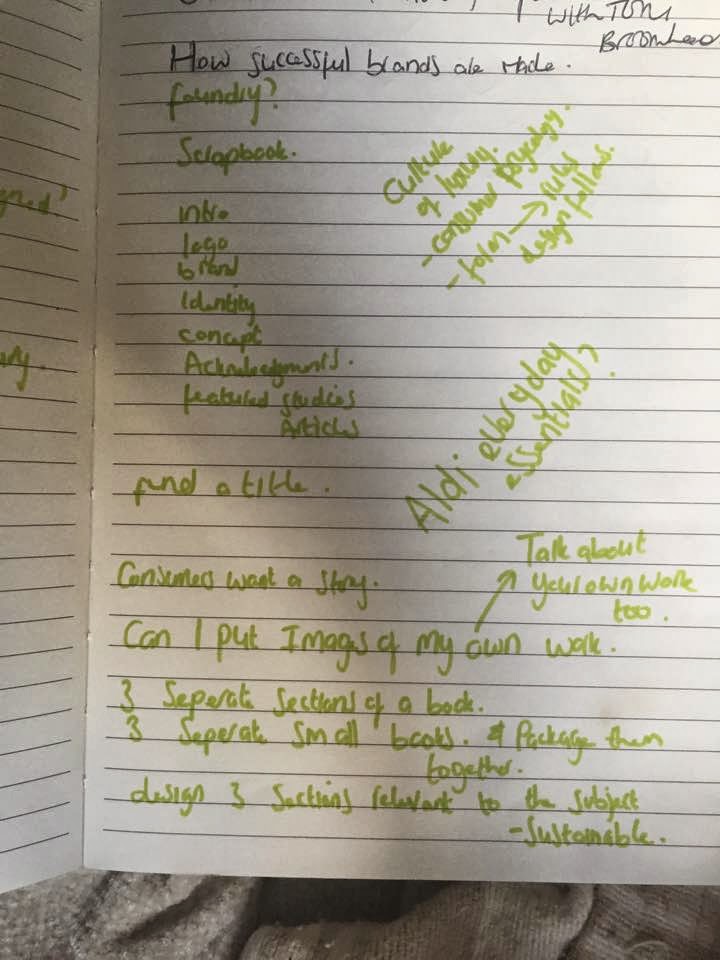 with Tom
Broomhead
How successful brands are made.
foundry?
Scrapbook.
Culture
of luxury.
- consumer psycology.
- form → rules
design follows.
intro
logo
brand
Identity
concept
Acknowledgments.
featured studies
Articles
Aldi everyday
essentials?
find a title.
Talk about
your own work
too.
Consumers want a story.
Can I put Images of my own work.
3 Seperate Sections of a book.
3 Seperate Small books. & Package them
together.
design 3 Sections relevant to the subject
- Sustainable.